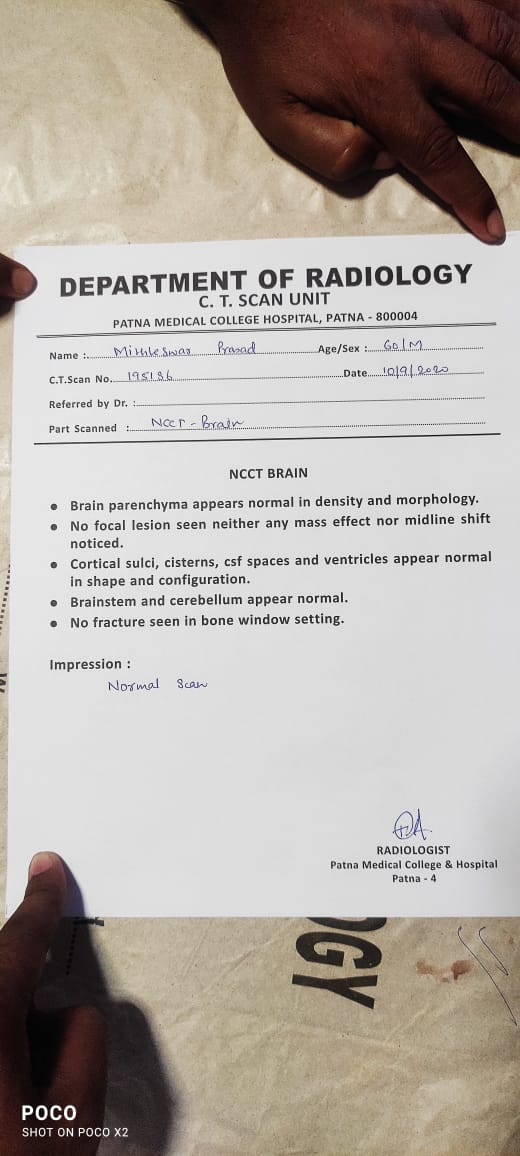 DEPARTMENT OF RADIOLOGY
C. T. SCAN UNIT
PATNA MEDICAL COLLEGE HOSPITAL, PATNA - 800004
Name :. Mithleswar Prasad Age/Sex : 60/M
C.T.Scan No. 195186 Date 10/9/2020
Referred by Dr. :
Part Scanned : NCCT - Brain
NCCT BRAIN
● Brain parenchyma appears normal in density and morphology.
● No focal lesion seen neither any mass effect nor midline shift
noticed.
● Cortical sulci, cisterns, csf spaces and ventricles appear normal
in shape and configuration.
● Brainstem and cerebellum appear normal.
● No fracture seen in bone window setting.
Impression :
Normal Scan
RADIOLOGIST
Patna Medical College & Hospital
Patna - 4
OGY
POCO
SHOT ON POCO X2